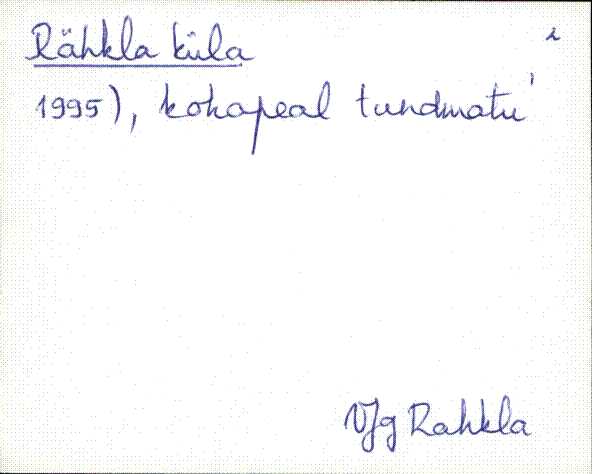 Rähkla küla 2
1995), kohapeal tundmatu'
VJg Rahkla